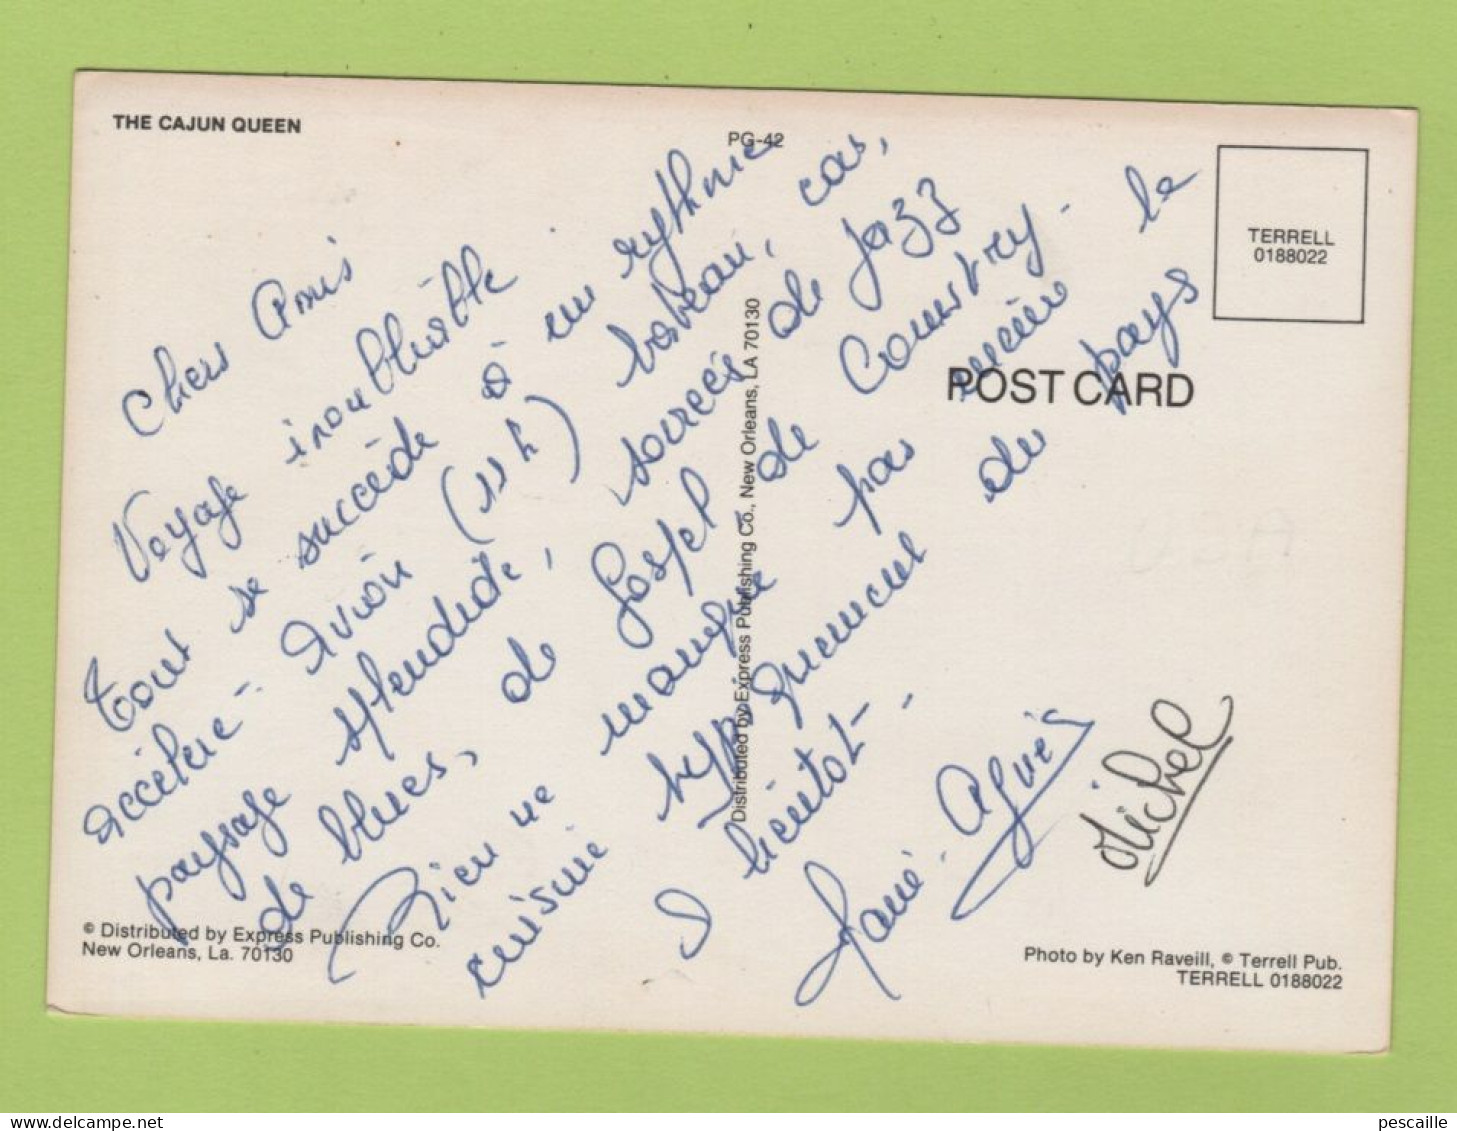 THE CAJUN QUEEN
PG-42
TERRELL
0188022
POST CARD
Chers Amis
Voyage inoubliable
Tout se succède à un rythme
accéléré - avion (11 h) bateau, car,
paysage splendide, soirées de Jazz
de blues, de Gospel, de Country - le
Rien ne manque pas même
cuisine du pays
A bientot -
Marie-Agnès
Michel
Distributed by Express Publishing Co., New Orleans, LA 70130
© Distributed by Express Publishing Co.
New Orleans, La. 70130
Photo by Ken Raveill, © Terrell Pub.
TERRELL 0188022
pescaille